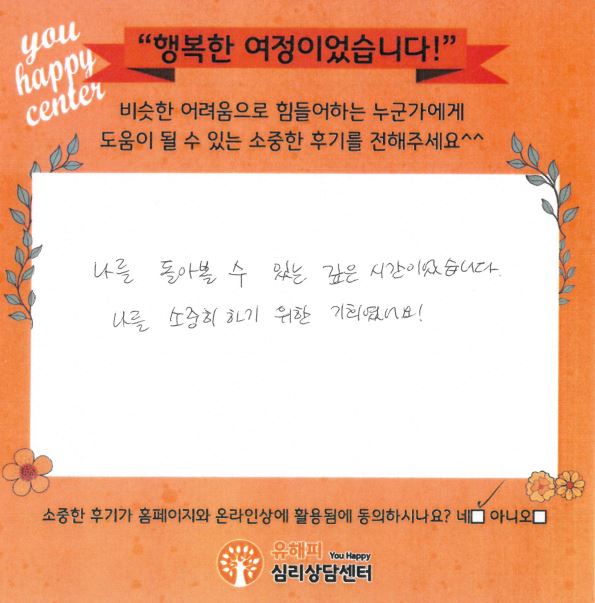 you
happy
center
“행복한 여정이었습니다!”
비슷한 어려움으로 힘들어하는 누군가에게
도움이 될 수 있는 소중한 후기를 전해주세요^^
나를 돌아볼 수 있는 깊은 시간이었습니다.
나를 소중히 하기 위한 기회였어요!
소중한 후기가 홈페이지와 온라인상에 활용됨에 동의하시나요? 네☐ 아니오☐
유해피 You Happy
심리상담센터